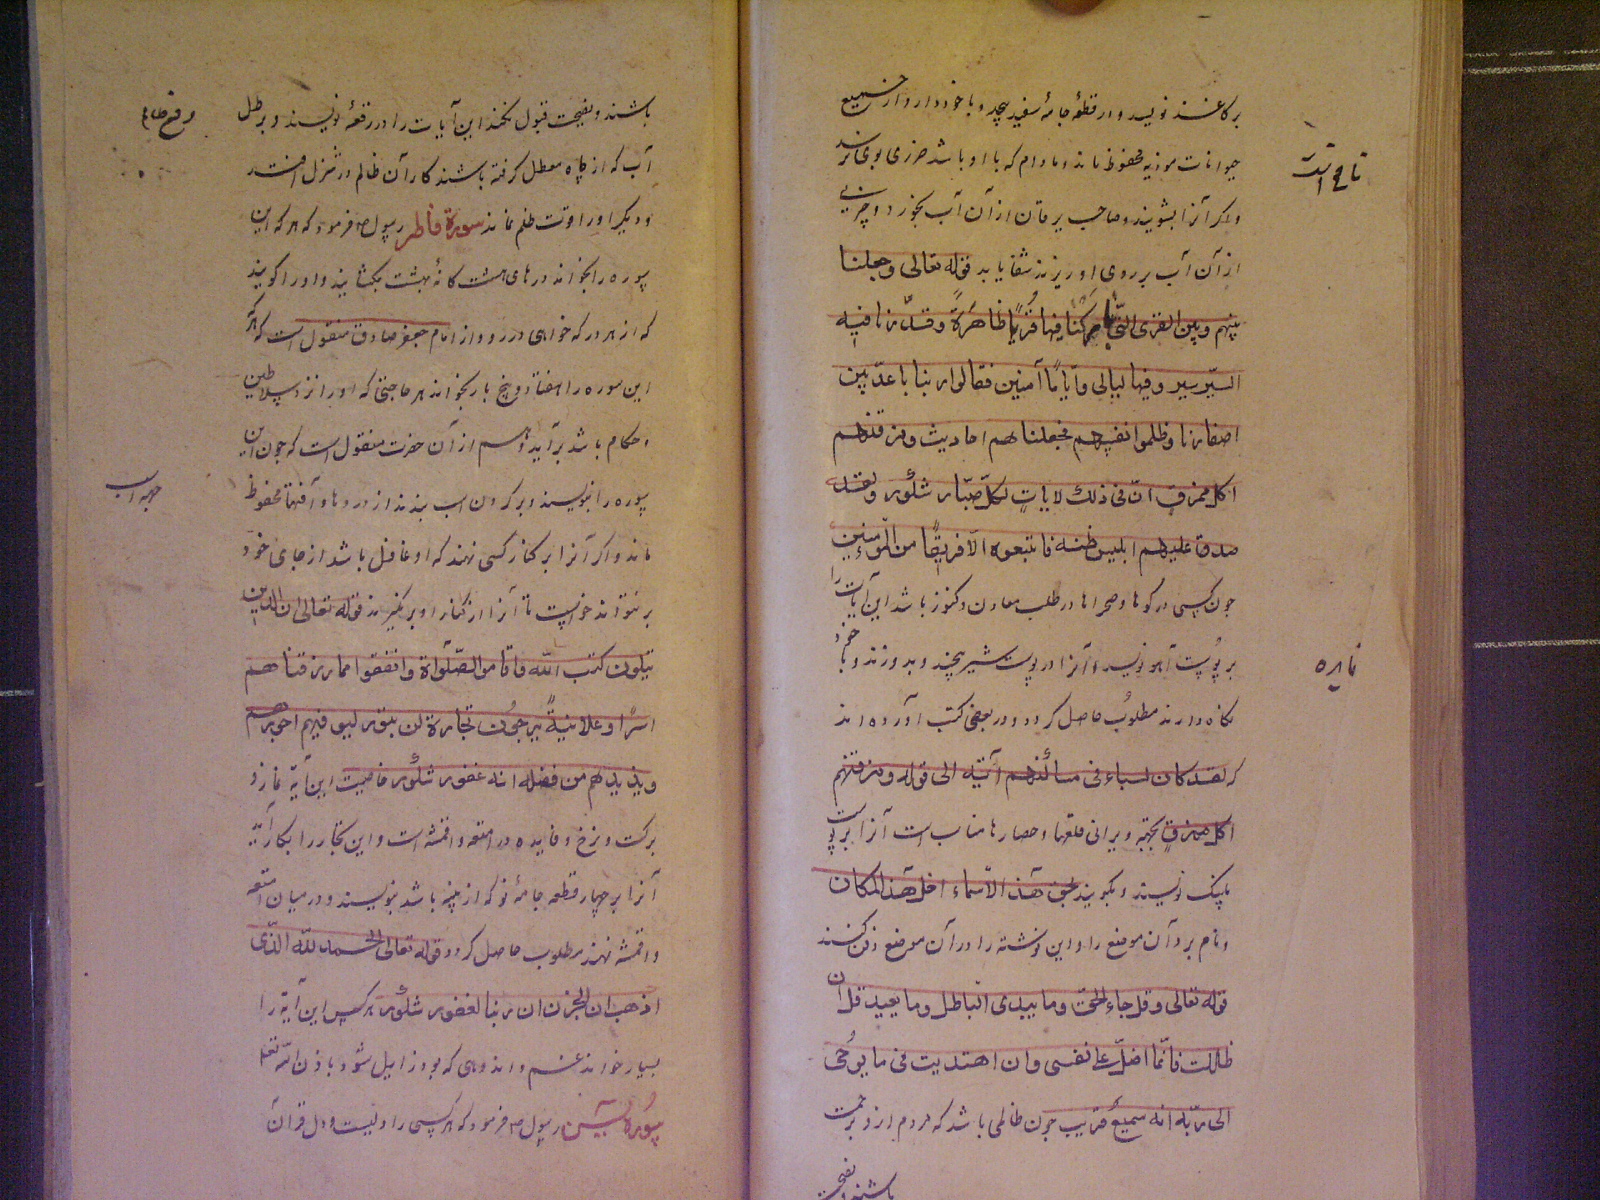 بر کاغذ نویسد و در قطعهٔ جامهٔ سفید پیچد و با خود دارد از جمیع
حیوانات موذیه محفوظ ماند و مادام که با او باشد ضرری بوی نرسد
و اگر آنرا بشویند و صاحب یرقان از آن آب بخورد و چیزی
از آن آب بر روی او ریزند شفا یابد قوله تعالی وجعلنا
بینهم وبین القری التی بارکنا فیها قری ظاهرة وقدرنا فیه
السیر سیروا فیها لیالی وایاما آمنین فقالوا ربنا باعد بین
اسفارنا وظلموا انفسهم فجعلناهم احادیث ومزقنهم
کل ممزق ان فی ذلک لایات لکل صبار شکور ولقد
صدق علیهم ابلیس ظنه فاتبعوه الا فریقا من المؤمنین
چون کسی در کوها و صحراها در طلب معادن و کنوز باشد این آیات را
بر پوست آهو نویسد و آنرا در پوست شیر پیچند و بدوزند و با خود
نگاه دارند مطلوب حاصل کردد و در بعضی کتب آورده اند
که لقد کان لسباء فی مساکنهم آیة الی قوله ومزقنهم
کل ممزق بجهة ویرانی قلعها و حصارها مناسب است آنرا بر پوست
پلنک نویسند و بکویند بحق هذه الاسماء اخل هذا المکان
و نام برد آن موضع را و این نوشته را در آن موضع دفن کنند
قوله تعالی وقل جاء الحق وما یبدی الباطل وما یعید قل ان
ضللت فانما اضل علی نفسی وان اهتدیت فبما یوحی
الی ربه انه سمیع قریب چون ظالمی باشد که مردم ازو بزحمت
باشند و نصیحت
باشند و نصیحت قبول نکند این آیات را در رقعهٔ نویسند و بر طل
آب که از چاه معطل کرفته باشند کار آن ظالم در تنزل افتد
و دیکر او را قوت ظلم نماند سورة فاطر رسول ص فرمود که هر که این
سوره را بخواند درهای هشت کانهٔ بهشت بکشایند و او را کویند
که از هر در که خواهی در رو و از امام جعفر صادق منقول است که هر که
این سوره را هفتاد و پنج بار بخواند هر حاجتی که او را نزد سلاطین
و حکام باشد برآید و هم از آن حضرت منقول است که چون این
سوره را بنویسند و بر کردن اسب بندند از دردها و آفتها محفوظ
ماند و اکر آنرا بر کنار کسی نهند که او غافل باشد از جای خود
بر نتواند خواست تا آنرا از کنار او بر نکیرند قوله تعالی ان الذین
یتلون کتب الله واقاموا الصلواة وانفقوا مما رزقناهم
سرا وعلانیة یرجون تجارة لن تبور لیوفیهم اجورهم
ویزیدهم من فضله انه غفور شکور خاصیت این آیة نماز و
برکت و نرخ و فایده در امتعه و اقمشه است و این تجار را بکار آید
آنرا بر چهار قطعه جامهٔ نو که از پنبه باشد بنویسند و در میان امتعه
و اقمشه نهند مطلوب حاصل کردد قوله تعالی الحمد لله الذی
اذهب ان الحزن ان ربنا لغفور شکور هر کس این آیة را
بسیار خواند غم و اندوهی که بود زایل شود باذن الله تعالی
سورة یس رسول ص فرمود که هر کسی را دلیست و دل قرآن